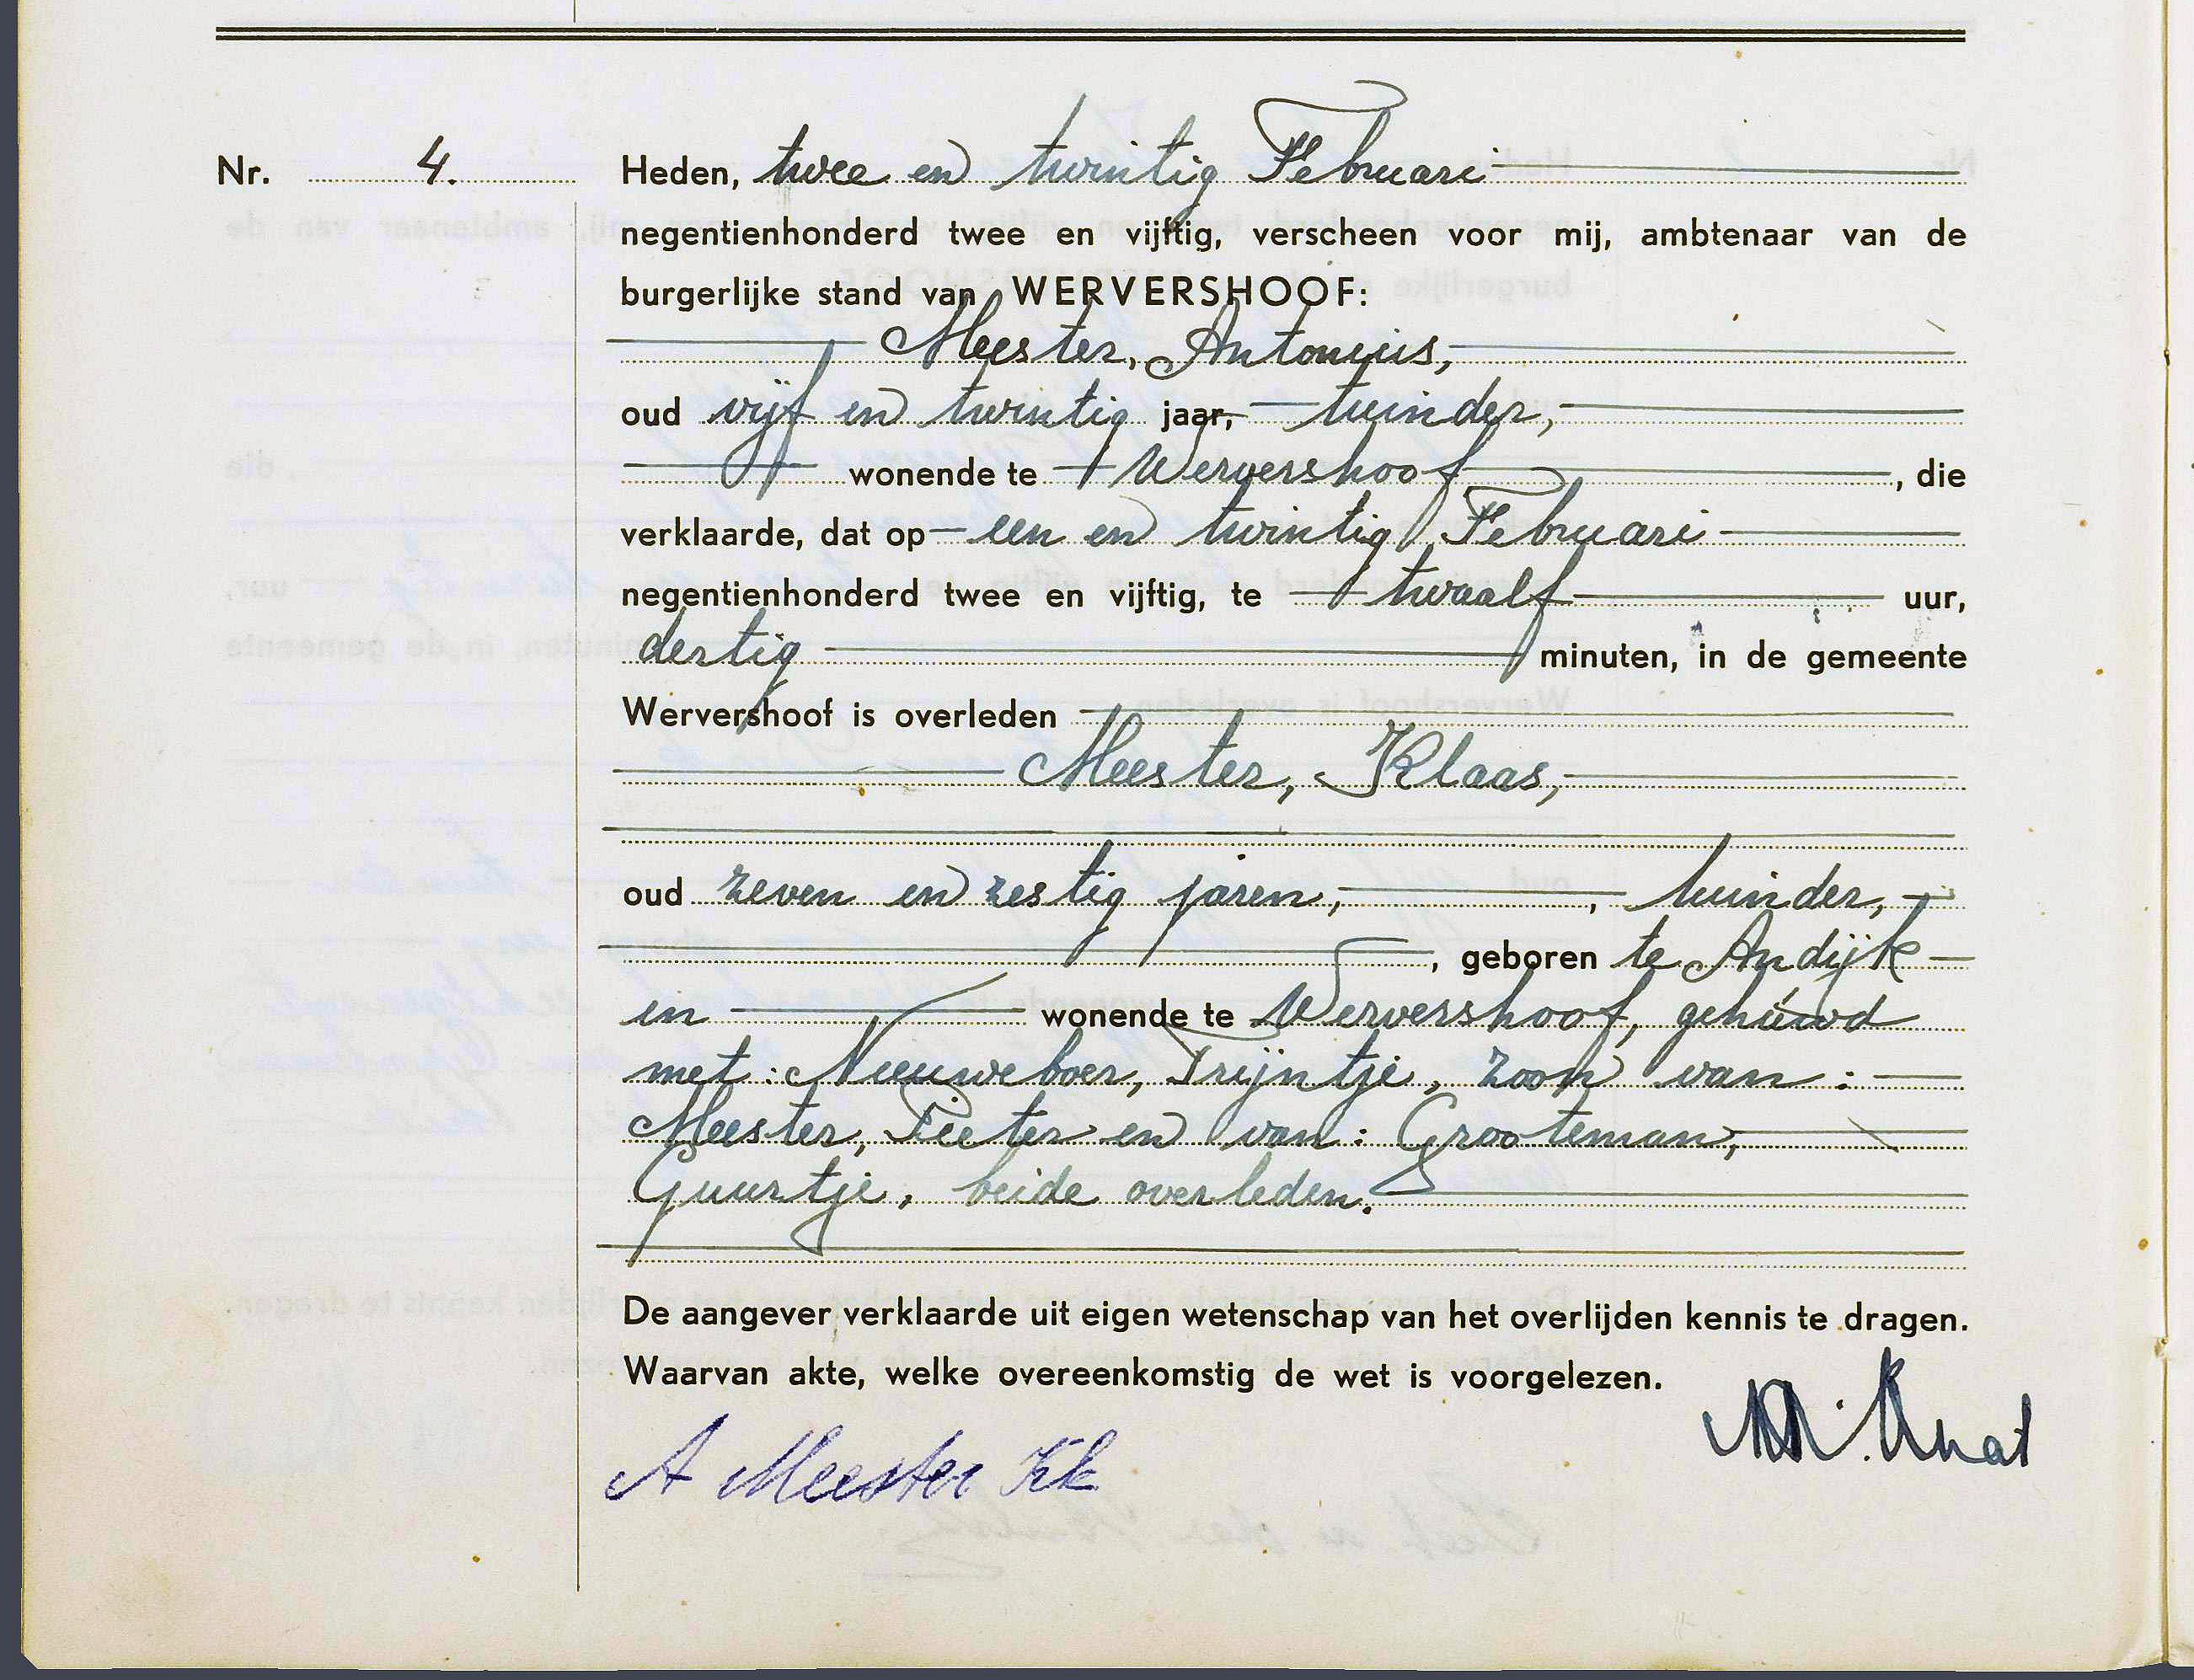 Nr. 4. Heden, twee en twintig Februari
negentienhonderd twee en vijftig, verscheen voor mij, ambtenaar van de
burgerlijke stand van WERVERSHOOF:
Meester, Antonius,
oud vijf en twintig jaar, tuinder,
wonende te Wervershoof, die
verklaarde, dat op een en twintig Februari
negentienhonderd twee en vijftig, te twaalf uur,
dertig minuten, in de gemeente
Wervershoof is overleden
Meester, Klaas,
oud zeven en zestig jaren, , tuinder,
, geboren te Andijk
en wonende te Wervershoof, gehuwd
met: Nieuweboer, Trijntje, zoon van:
Meester, Pieter en van: Grooteman,
Guurtje, beide overleden.
De aangever verklaarde uit eigen wetenschap van het overlijden kennis te dragen.
Waarvan akte, welke overeenkomstig de wet is voorgelezen.
A Meester Kk